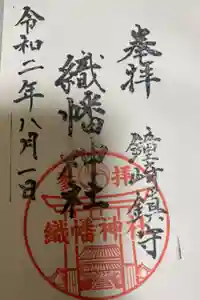 奉拝
鐘崎鎮守
織幡神社
令和二年八月一日
参拝
織幡神社